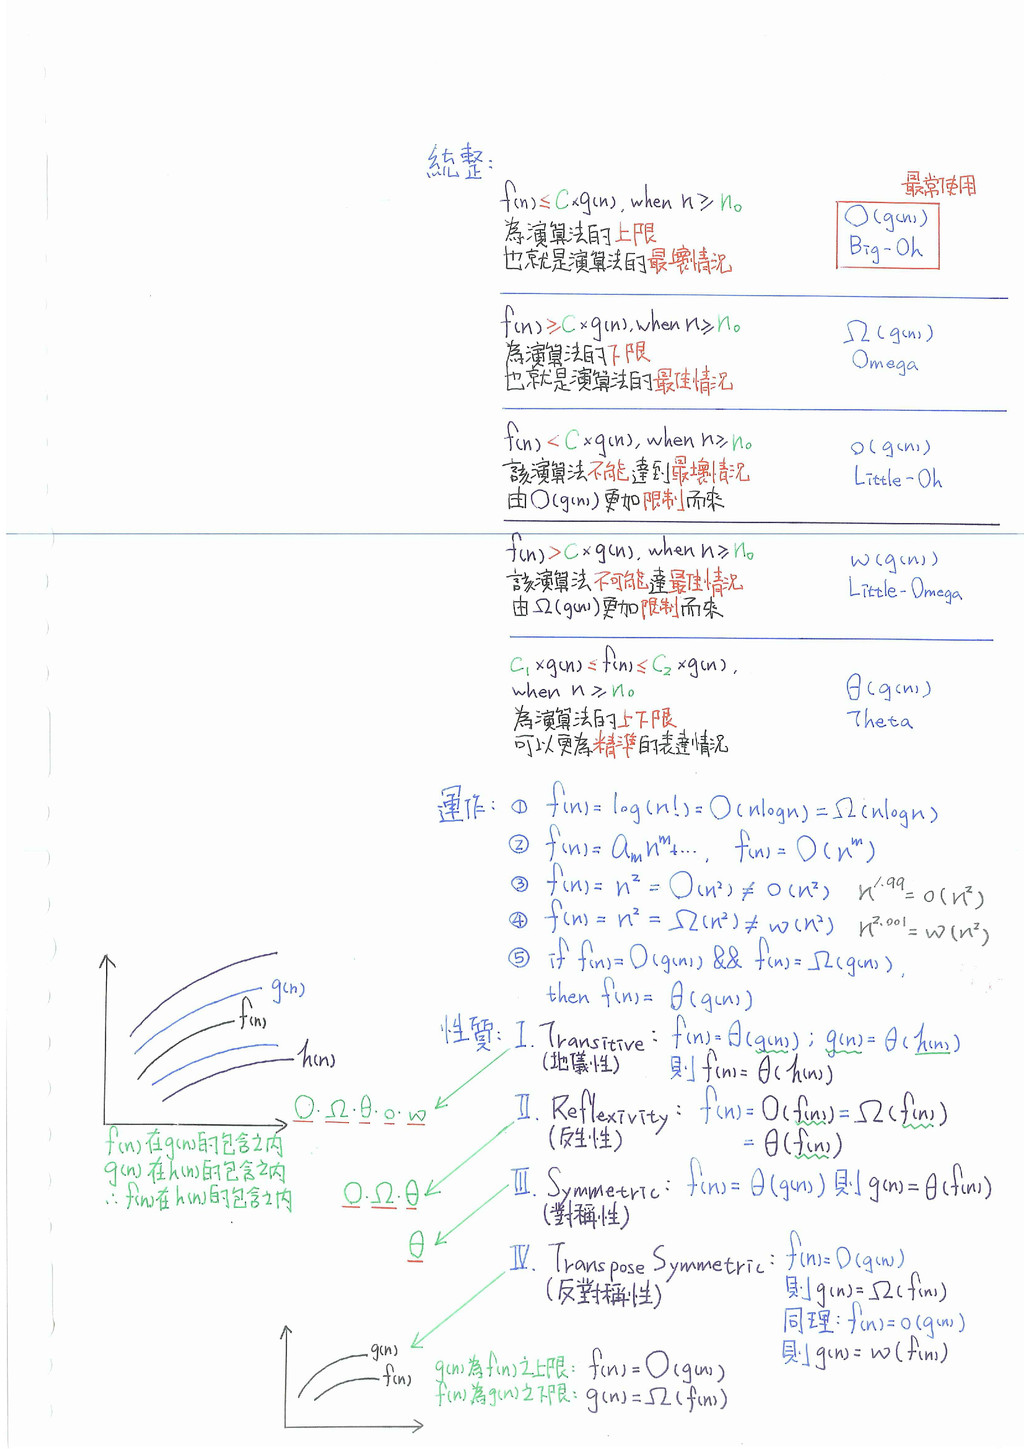 統整:
最常使用
f(n) ≤ C×g(n), when n ≥ n₀
為演算法的上限
也就是演算法的最壞情況
O(g(n))
Big-Oh
f(n) ≥ C×g(n), when n ≥ n₀
為演算法的下限
也就是演算法的最佳情況
Ω(g(n))
Omega
f(n) < C×g(n), when n ≥ n₀
該演算法不能達到最壞情況
由O(g(n))更加限制而來
o(g(n))
Little-Oh
f(n) > C×g(n), when n ≥ n₀
該演算法不可能達最佳情況
由Ω(g(n))更加限制而來
w(g(n))
Little-Omega
C₁×g(n) ≤ f(n) ≤ C₂×g(n),
when n ≥ n₀
為演算法的上下限
可以更為精準的表達情況
θ(g(n))
Theta
運作: ① f(n) = log(n!) = O(nlogn) = Ω(nlogn)
② f(n) = aₘnᵐ+..., f(n) = O(nᵐ)
③ f(n) = n² = O(n²) ≠ o(n²) n^1.99 = o(n²)
④ f(n) = n² = Ω(n²) ≠ w(n²) n^2.001 = w(n²)
⑤ if f(n) = O(g(n)) && f(n) = Ω(g(n)),
then f(n) = θ(g(n))
性質: I. Transitive: f(n) = θ(g(n)) ; g(n) = θ(h(n))
(地儀性) 則 f(n) = θ(h(n))
O.Ω.θ.o.w
II. Reflexivity: f(n) = O(f(n)) = Ω(f(n))
(反生性) = θ(f(n))
O.Ω.θ
III. Symmetric: f(n) = θ(g(n)) 則 g(n) = θ(f(n))
(對稱性)
θ
IV. Transpose Symmetric: f(n) = O(g(n))
(反對稱性) 則 g(n) = Ω(f(n))
同理: f(n) = o(g(n))
則 g(n) = w(f(n))
g(n)
f(n)
h(n)
f(n) 在 g(n) 的包含之內
g(n) 在 h(n) 的包含之內
∴ f(n) 在 h(n) 的包含之內
g(n)
f(n)
g(n) 為 f(n) 之上限: f(n) = O(g(n))
f(n) 為 g(n) 之下限: g(n) = Ω(f(n))